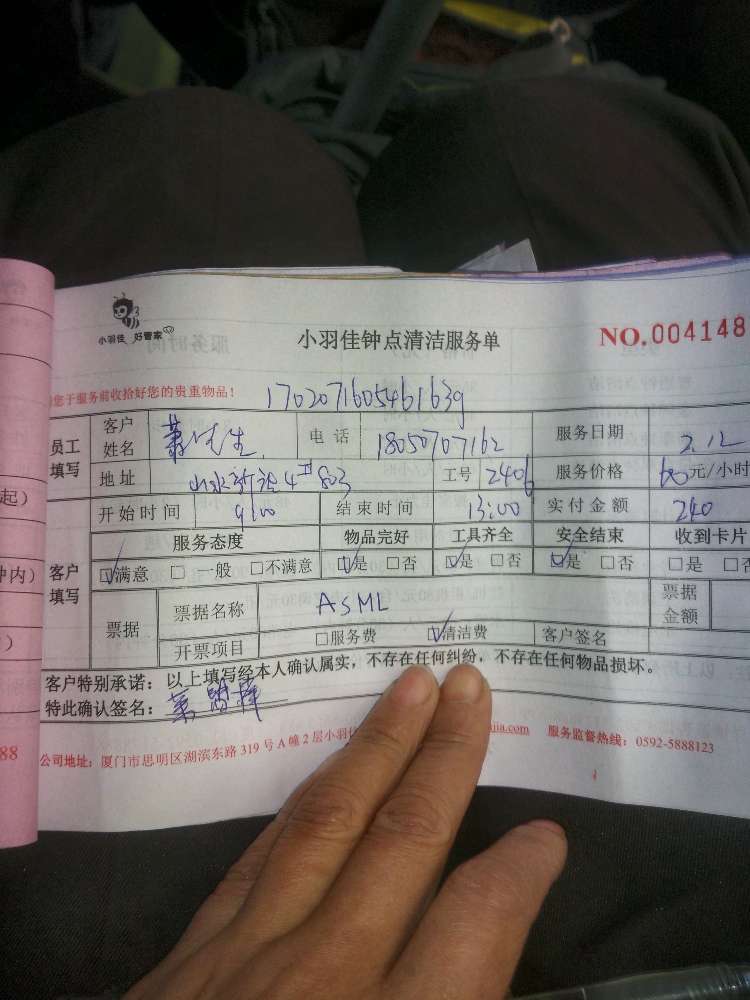 小羽佳 好管家
小羽佳钟点清洁服务单
NO.004148
您于服务前收拾好您的贵重物品！
1702071605461639
员工填写 客户姓名 萧先生 电话 18050707162 服务日期 2.12
地址 工号 2406 服务价格 60元/小时
客户填写 开始时间 9:00 结束时间 13:00 实付金额 240
服务态度 物品完好 工具齐全 安全结束 收到卡片
☑满意 □一般 □不满意 ☑是 □否 ☑是 □否 ☑是 □否 □是
票据 票据名称 ASML 票据金额
开票项目 □服务费 ☑清洁费 客户签名
客户特别承诺：以上填写经本人确认属实，不存在任何纠纷，不存在任何物品损坏。
特此确认签名：
公司地址：厦门市思明区湖滨东路 319 号 A 幢 2 层小羽佳 jia.com 服务监督热线：0592-5888123
起）
钟内）
）
88